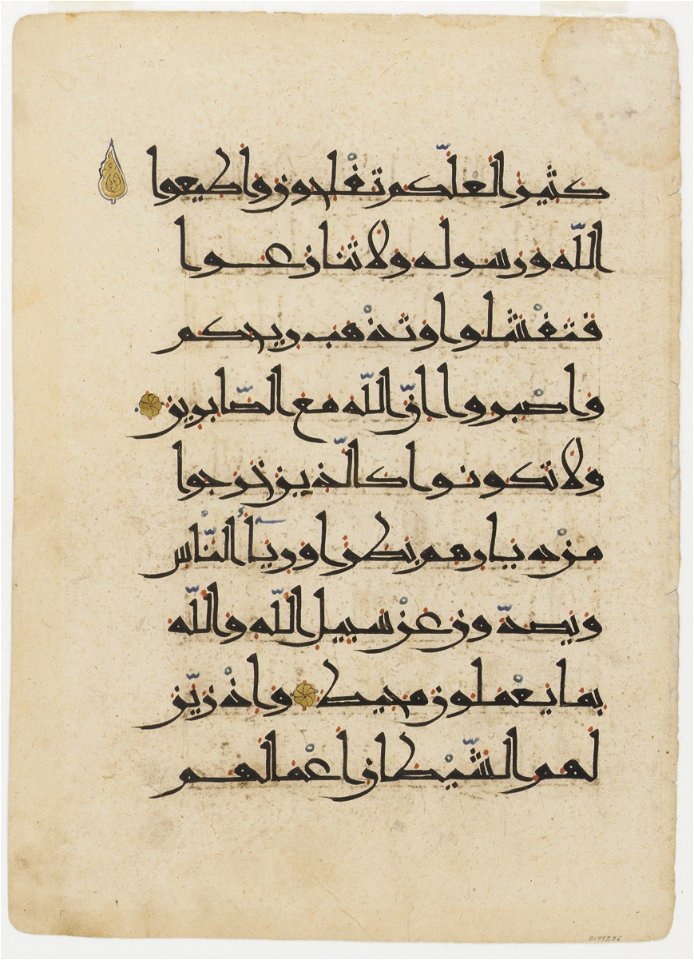 كثيرا لعلكم تفلحون واطيعوا
الله ورسوله ولا تنازعوا
فتفشلوا وتذهب ريحكم
واصبروا ان الله مع الصابرين
ولا تكونوا كالذين خرجوا
من ديارهم بطرا ورئآء الناس
ويصدون عن سبيل الله والله
بما يعملون محيط واذ زين
لهم الشيطان اعمالهم
S1997.96